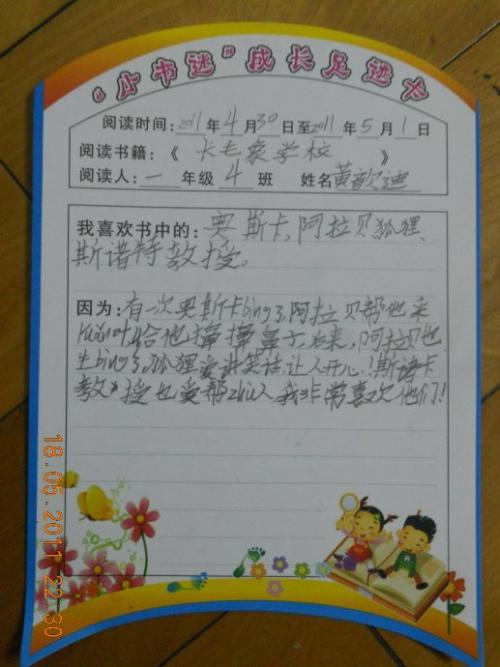 "小书迷"成长足迹卡
阅读时间：2011年4月30日至2011年5月1日
阅读书籍：《长毛象学校》
阅读人：一年级4班 姓名黄歆迪
我喜欢书中的：奥斯卡，阿拉贝狐狸、
斯诺特教授。
因为：有一次奥斯卡bing了，阿拉贝帮他采
叶给他擤擤鼻子。后来，阿拉贝也
生bing了。狐狸爱讲笑话，让人开心！斯诺卡
教授也爱帮zhu人，我非常喜欢他们！
18.05.2011 22:30